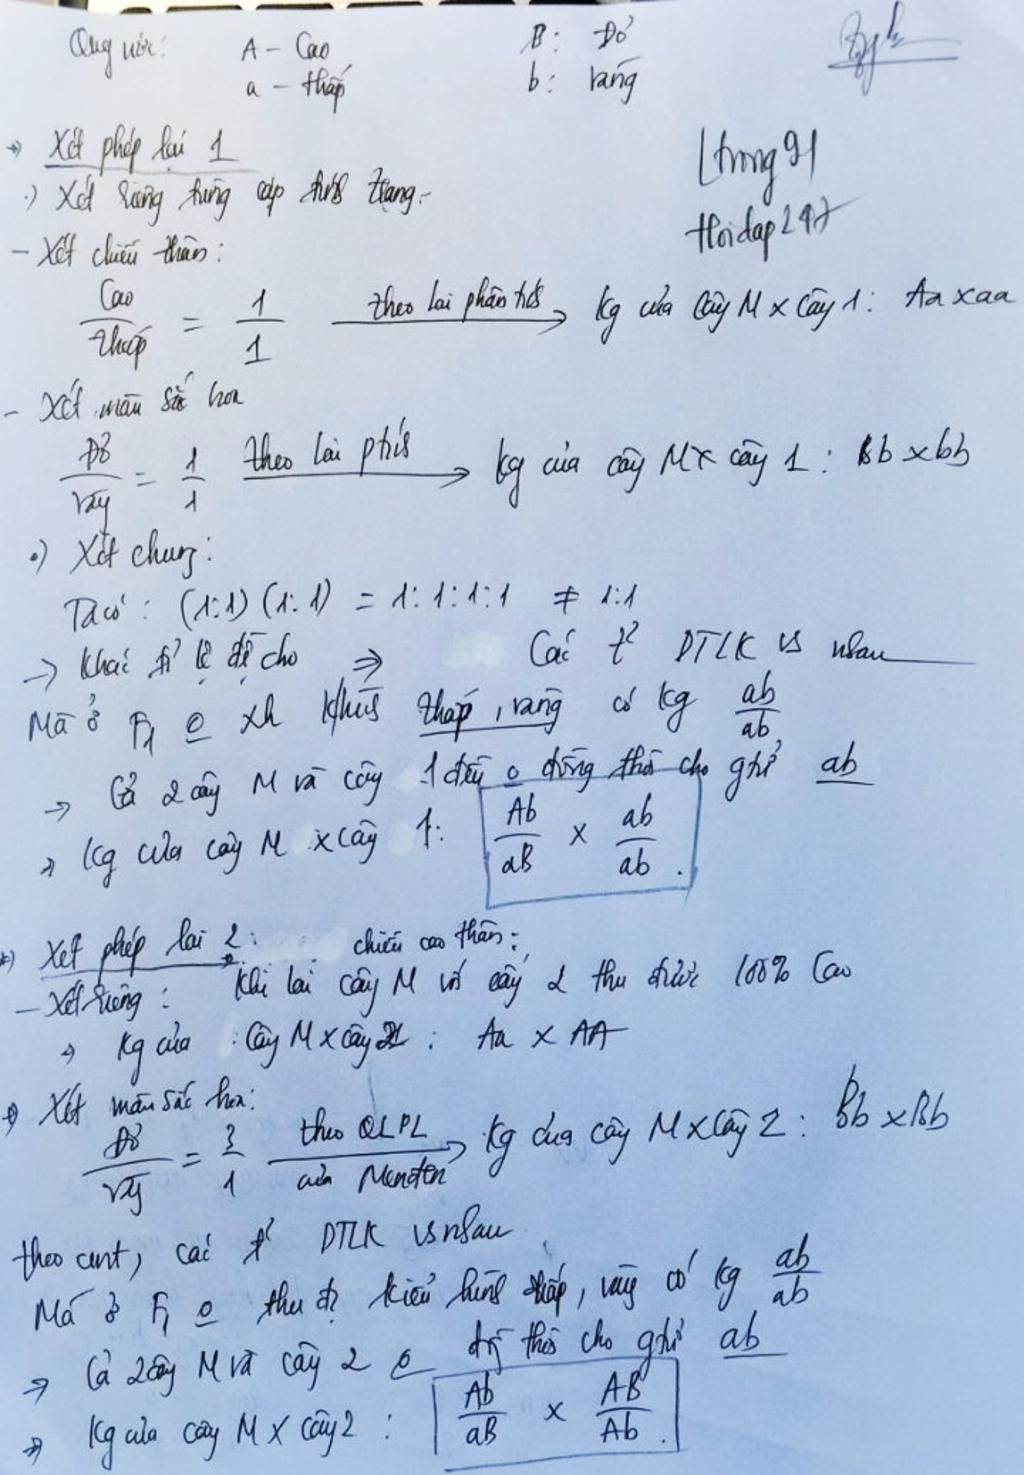 Quy ước: A - Cao B: Đỏ
a - thấp b: vàng
Xét phép lai 1
Xét riêng từng cặp tính trạng.
ltrong91
Hoidap247
- Xét chiều thân:
Cao/thấp = 1/1 theo lai phân tích → Kg của cây M x cây 1: Aa x aa
- Xét màu sắc hoa
Đỏ/vàng = 1/1 theo lai ptích → Kg của cây M x cây 1: Bb x bb
•) Xét chung:
Ta có: (1:1) (1:1) = 1:1:1:1 ≠ 1:1
→ Khác tỉ lệ đề cho ⇒ Các t² DTLK vs nhau
Mà ở F1 o xh KHình thấp, vàng có kg ab/ab
→ Cả 2 cây M và cây 1 đều o đồng thời cho gtử ab
→ Kg của cây M x cây 1: Ab/aB x ab/ab.
Xét phép lai 2:
- Xét riêng: chiều cao thân:
Khi lai cây M với cây 2 thu được 100% Cao
→ Kg của cây M x cây 2: Aa x AA
Xét màu sắc hoa:
Đỏ/vàng = 3/1 theo QLPL của Menđen → Kg của cây M x cây 2: Bb x Bb
theo cmt, các t² DTLK vs nhau
Mà ở F1 o thu đc kiểu hình thấp, vàng có kg ab/ab
→ Cả 2 cây M và cây 2 o đồng thời cho gtử ab
→ Kg của cây M x cây 2: Ab/aB x AB/Ab.